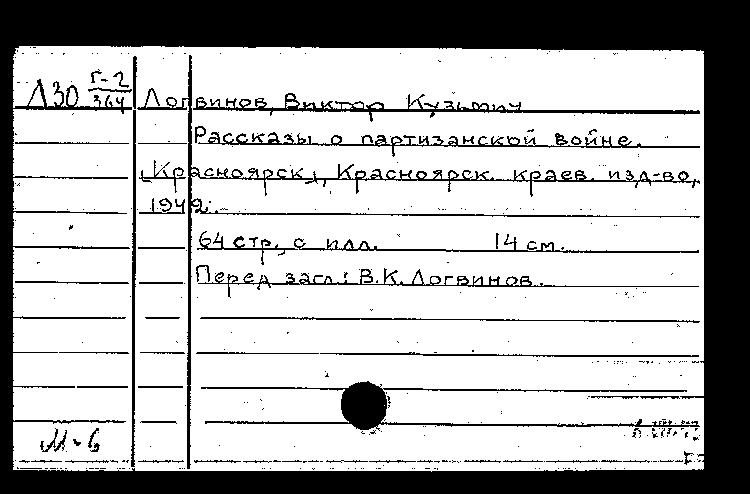 Л30 Г-2/364 Логвинов, Виктор Кузьмич
Рассказы о партизанской войне.
[Красноярск], Красноярск. краев. изд-во,
1942.
64 стр., с илл. 14 см.
Перед загл.: В.К. Логвинов.
М-6